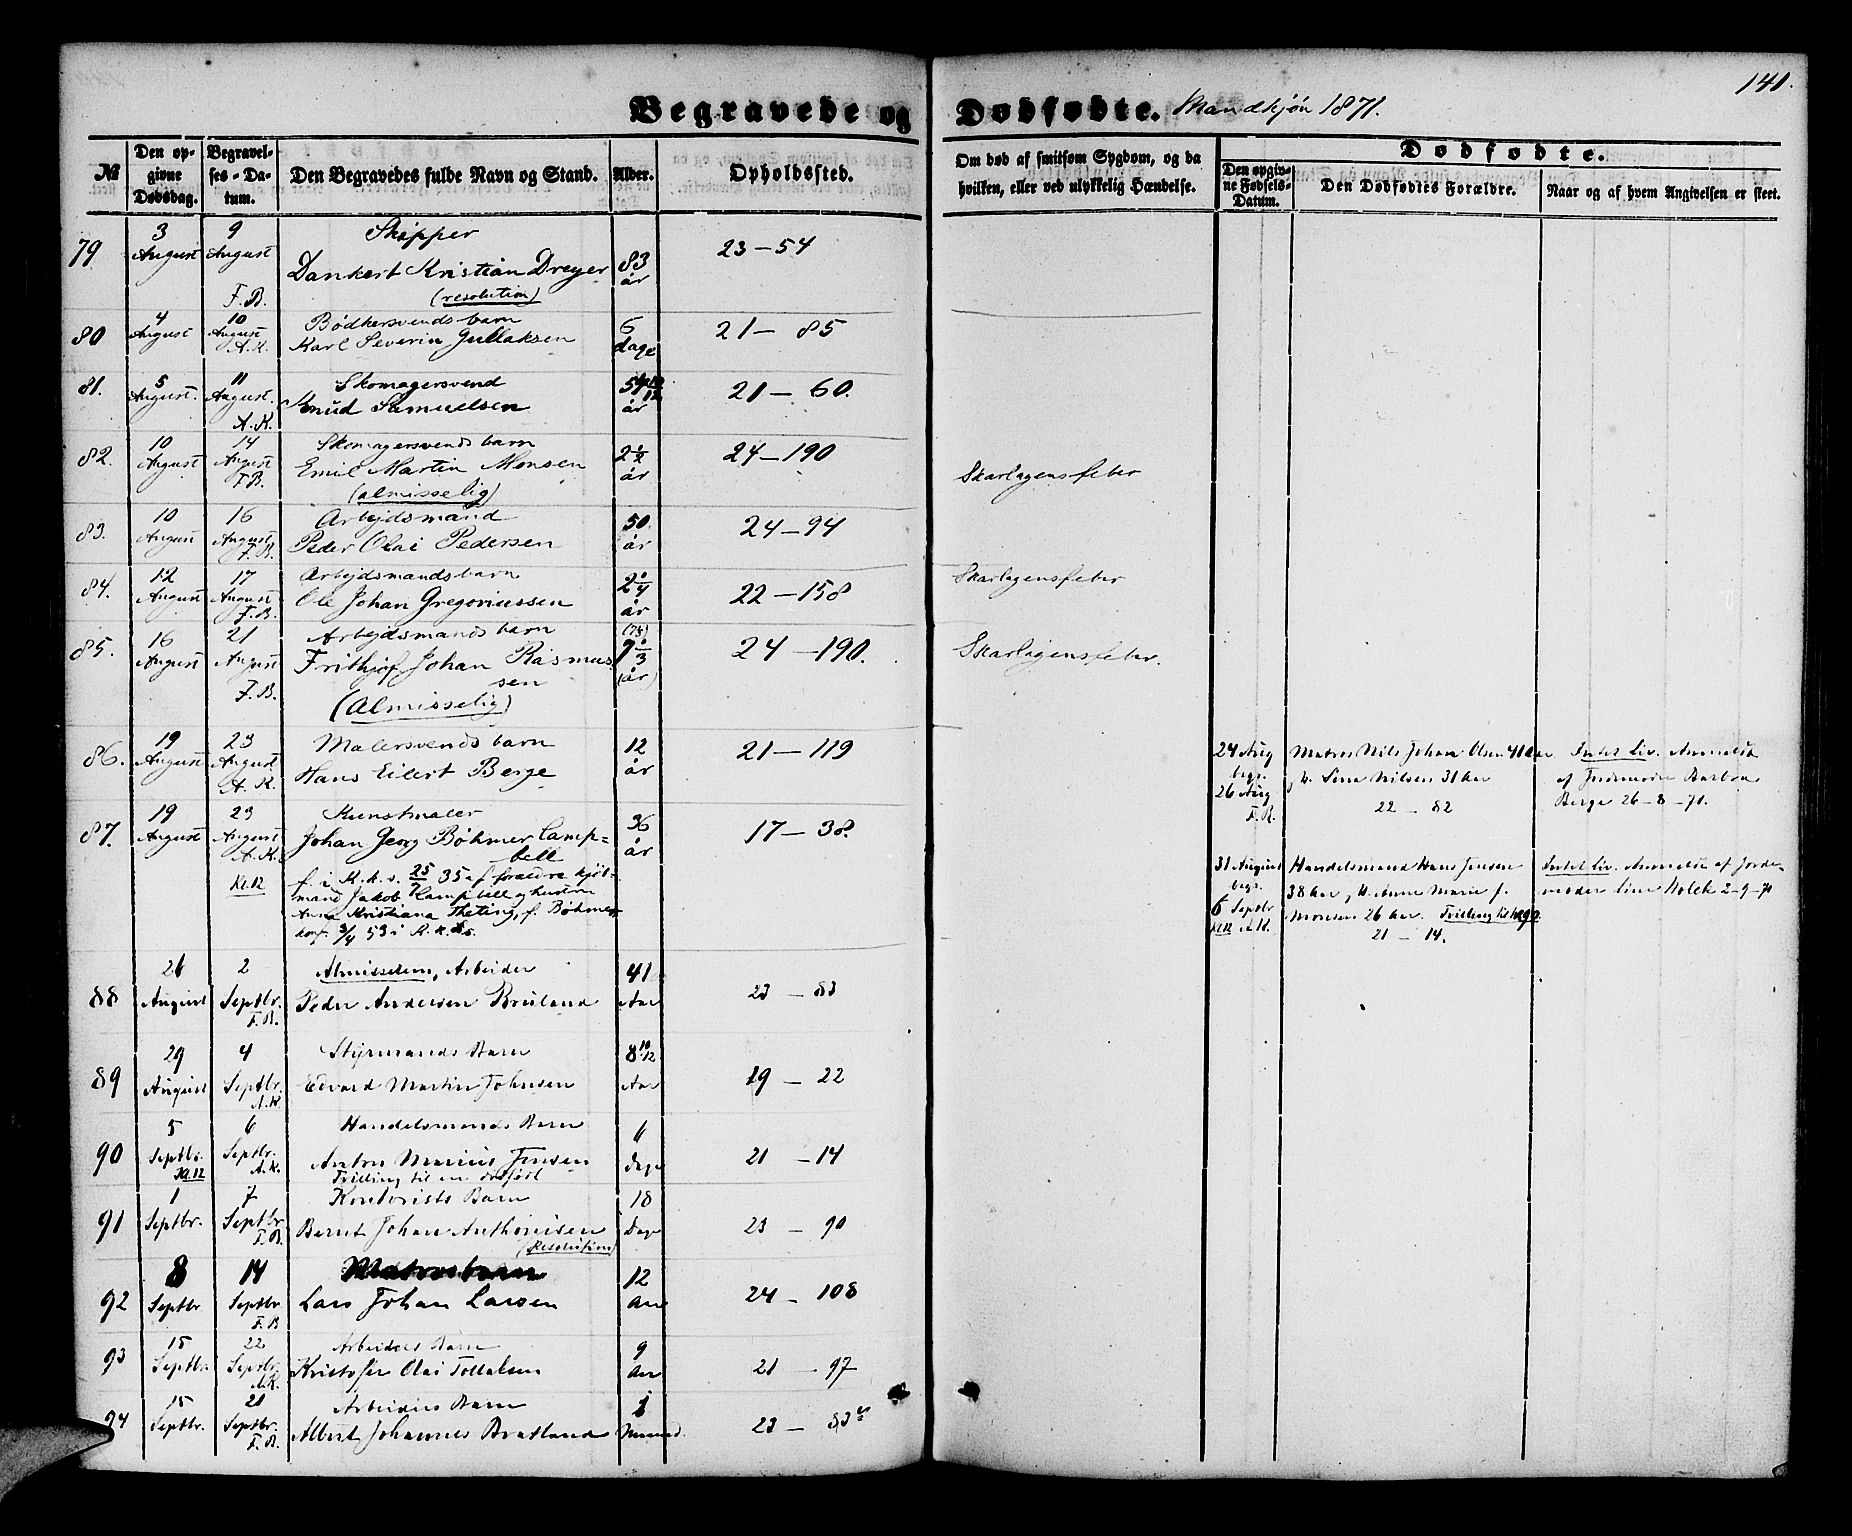 141.
Begravede og Dødfødte. Mandkjøn 1871.
№
Den opgivne Dødsdag.
Begravelses-Datum.
Den Begravedes fulde Navn og Stand.
Alder.
Opholdssted.
Om død af smitsom Sygdom, og da hvilken, eller ved ulykkelig Hændelse.
Dødfødte.
Den opgivne Fødsels-Datum.
Den Dødfødtes Forældre.
Naar og af hvem Angivelsen er skeet.
79 3 August 9 August F.B. Skipper
Dankert Kristian Dreyer 83 år 23 – 54
(resolution)
80 4 August 10 August A.K. Bødkersvends barn
Karl Severin Gullaksen 6 dage 21 – 85
81. 5 August. 11 August. A.K. Skomagersvend
Knud Samuelsen år 21 – 60.
82. 10 August 14 August F.B. Skomagersvends barn
Emil Martin Monsen 2 1/2 år 24 – 190 Skarlagensfeber
(almisselig)
83. 10 August 16 August F.B. Arbejdsmand
Peder Olai Pedersen 50. år 24 – 94
84. 12 August 17 August F.B. Arbejdsmands barn
Ole Johan Gregoriussen 2 1/4 år 22 – 158 Skarlagensfeber
85. 16 August 21 August F.B. Arbejdsmands barn
Frithjof Johan Rasmus
sen (år) 24 – 190. Skarlagensfeber.
(Almisselig)
86. 19 August 23 August A.K. Malersvends barn
Hans Eilert Berge 12 år 21 – 119
24 Aug begr. 26 Aug F.B.
Matros Nils Johan Olsen 41 Aar
Lina Nilsen 31 Aar
22 – 82
Intet Liv. Anmeldt
af Jordmoder
Berge 26-8-71.
87. 19 August 23 August A.K. Kl.12 Kunstmaler
Johan Georg Bøhmer Camp=
bell 36 år 17 – 38.
f. i K.k.s. 25/7 35 af forældre kjøb=
mand Jakob Campbell og hustru
Anna Kristiana Theting, f. Bøhmer
konf. 3/4 53 i K.k.s.
31 August begr. 6 Septbr Kl.12 A.K.
Handelsmand Hans Jensen
38 Aar, H. Anne Marie f.
Monsen 26 Aar. Tvilling til No 90.
21 – 14.
Intet Liv. Anmeldt af Jorde
moder Line Holck 2-9-71
88 26 August 2 Septbr. F.B. Almisselem, Arbeider
Peder Andersen 41 Aar 23 – 83
89 29 August 4 Septbr. A.K. Styrmands Barn
Edvard Martin Johnsen 8 10/12 Aar 19 – 22
90 5 Septbr. Kl.12 6 Septbr. A.K. Handelsmands Barn
Anton Marius Jensen Dage 21 – 14
Tvilling til en dødfødt
91 1 Septbr. 7 Septbr. F.B. Kontorists Barn
Bernt Johan Anthonisen 18 Dage 23 – 90
(Resolution)
92 8 Septbr 14 Septbr F.B Matros barn
Lars Johan Larsen 12 Aar 24 – 108
93 15 Septbr. 22 Septbr. A.K. Arbeiders Barn
Kristofer Olai Tollaksen 9 Aar 21 – 97
94 15 Septbr. 21 Septbr. F.B. Arbeiders Barn
Albert Johannes Bratland 1 Maaned. 23 – 83